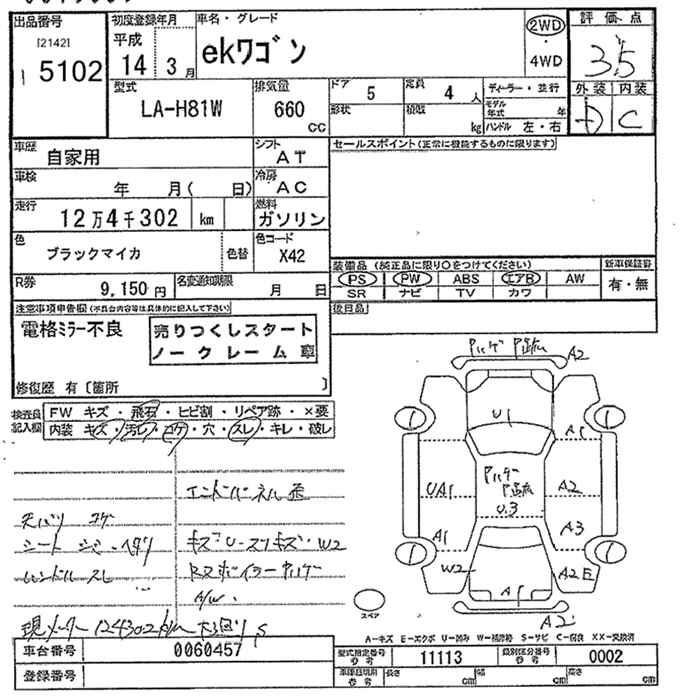 出品番号 初度登録年月 車名・グレード 2WD 評価点
[2142] 平成 ekワゴン ・ 3.5
5102 14年 3月 4WD 外装 内装
型式 排気量 ドア 5 定員 4人 ディーラー・並行 D C
LA-H81W 660cc 形状 積載 kg モデル年式 年 ハンドル 左・右
車歴 自家用 シフト AT セールスポイント(正常に機能するものに限ります)
車検 年 月( 日) 冷房 AC
走行 12万4千302 km 燃料 ガソリン
色 ブラックマイカ 色替 色コード X42
装備品(純正品に限り○をつけてください) 新車保証書
R券 9,150円 名変通知期限 月 日 PS PW ABS エアB AW 有・無
SR ナビ TV カワ
注意事項申告欄(不具合内容等は具体的に記入して下さい) 後日品
電格ミラー不良 売りつくしスタート
ノークレーム車
修復歴 有〔箇所 〕
検査員記入欄 FW キズ・飛石・ヒビ割・リペア跡・×要
内装 キズ・汚レ・コゲ・穴・スレ・キレ・破レ
A2
U1
A1
UA1 A2
U3
A1 A3
W2 A2E
A1
天バリ コゲ
シート シミ・ヘタリ
ハンドル スレ
A/W
スペア
A2
現メーター 124302km
A-キズ E-エクボ U-凹み W-補修跡 S-サビ C-腐食 XX-交換済
車台番号 0060457 型式指定番号 参考 11113 類別区分番号 参考 0002
登録番号 車庫証明用 参考 長さ cm 幅 cm 高さ cm